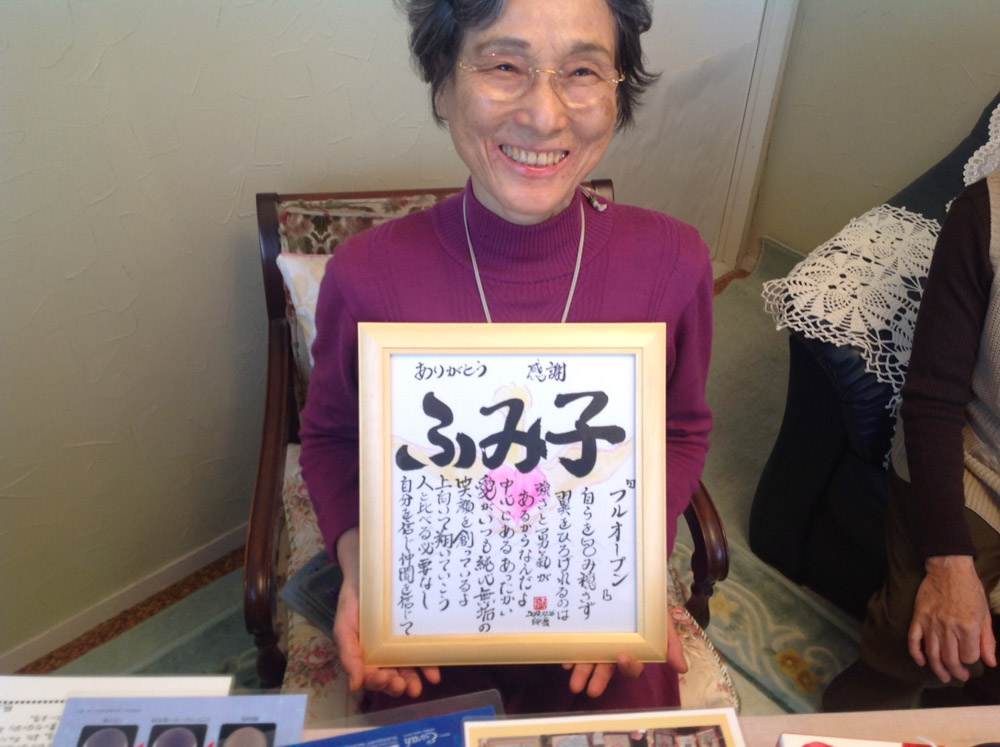 ありがとう　感謝
ふみ子
『フルオープン』
自らを包み隠さず
翼をひろげれるのは
強さと勇気が
あるからなんだよ
中心にあるあったかい
愛がいつも純心無垢の
笑顔を創っているよ
上向いて翔いていこう
人と比べる必要なし
自分を信じ仲間を信じて